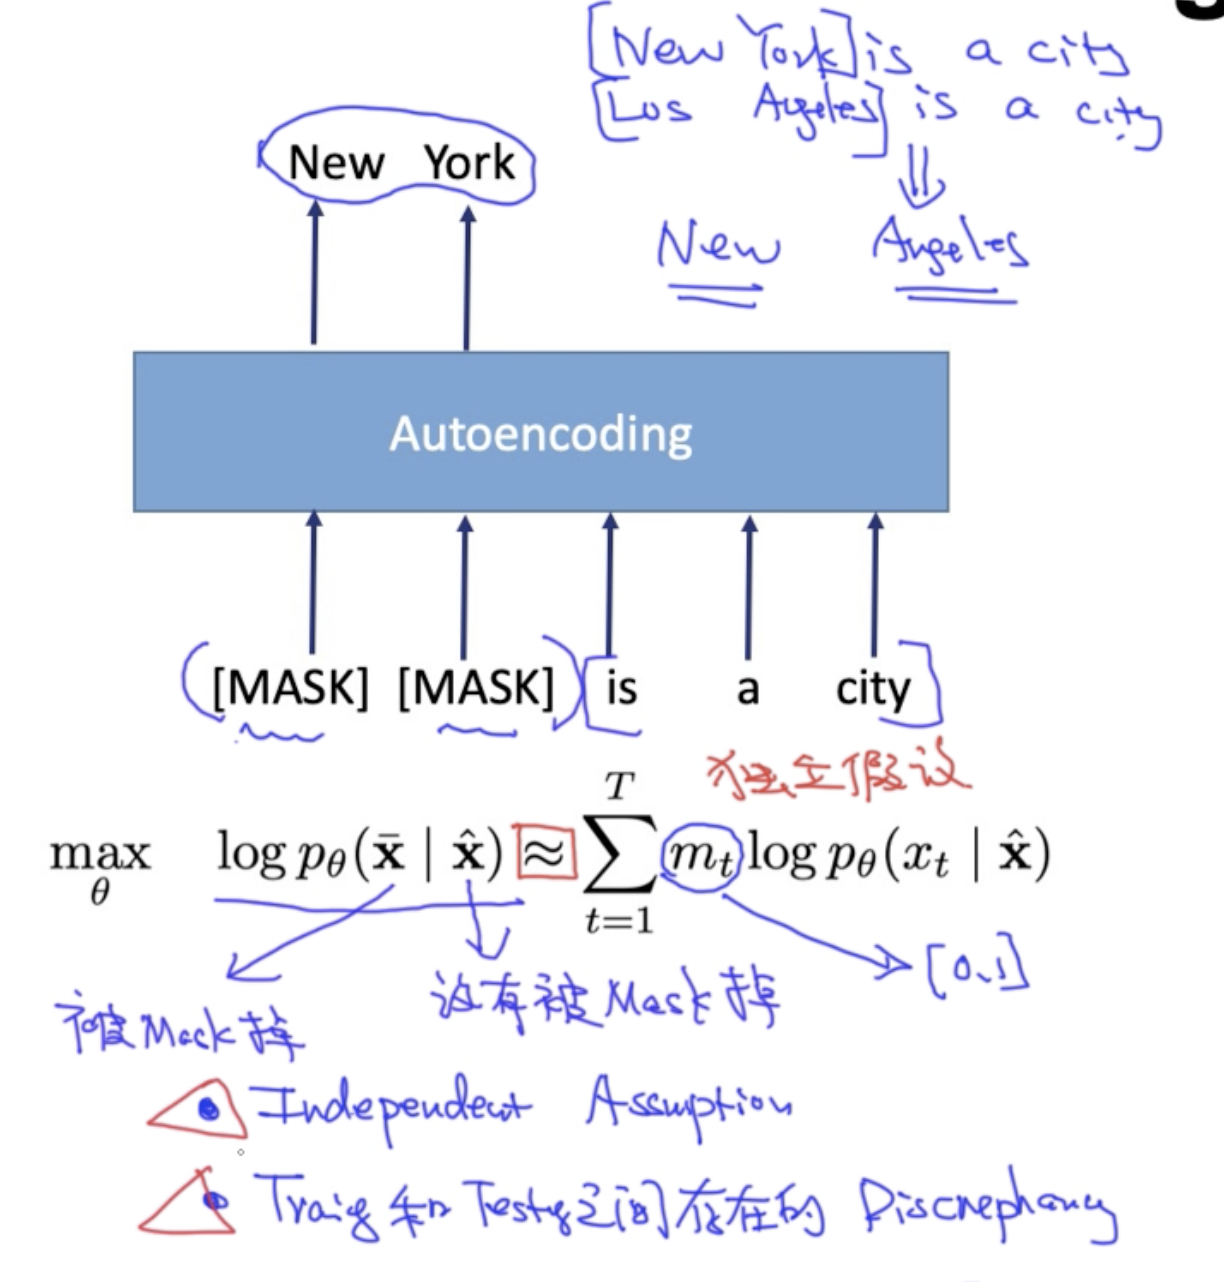 [New York] is a city
[Los Angeles] is a city
New York
New Angeles
Autoencoding
[MASK] [MASK] is a city
独立假设
max θ log pθ(x̄ | x̂) ≈ ∑ t=1 T mt log pθ(xt | x̂)
[0,1]
没有被Mask掉
被Mask掉
Independent Assumption
Traing 和 Testg之间存在的 Discrephancy